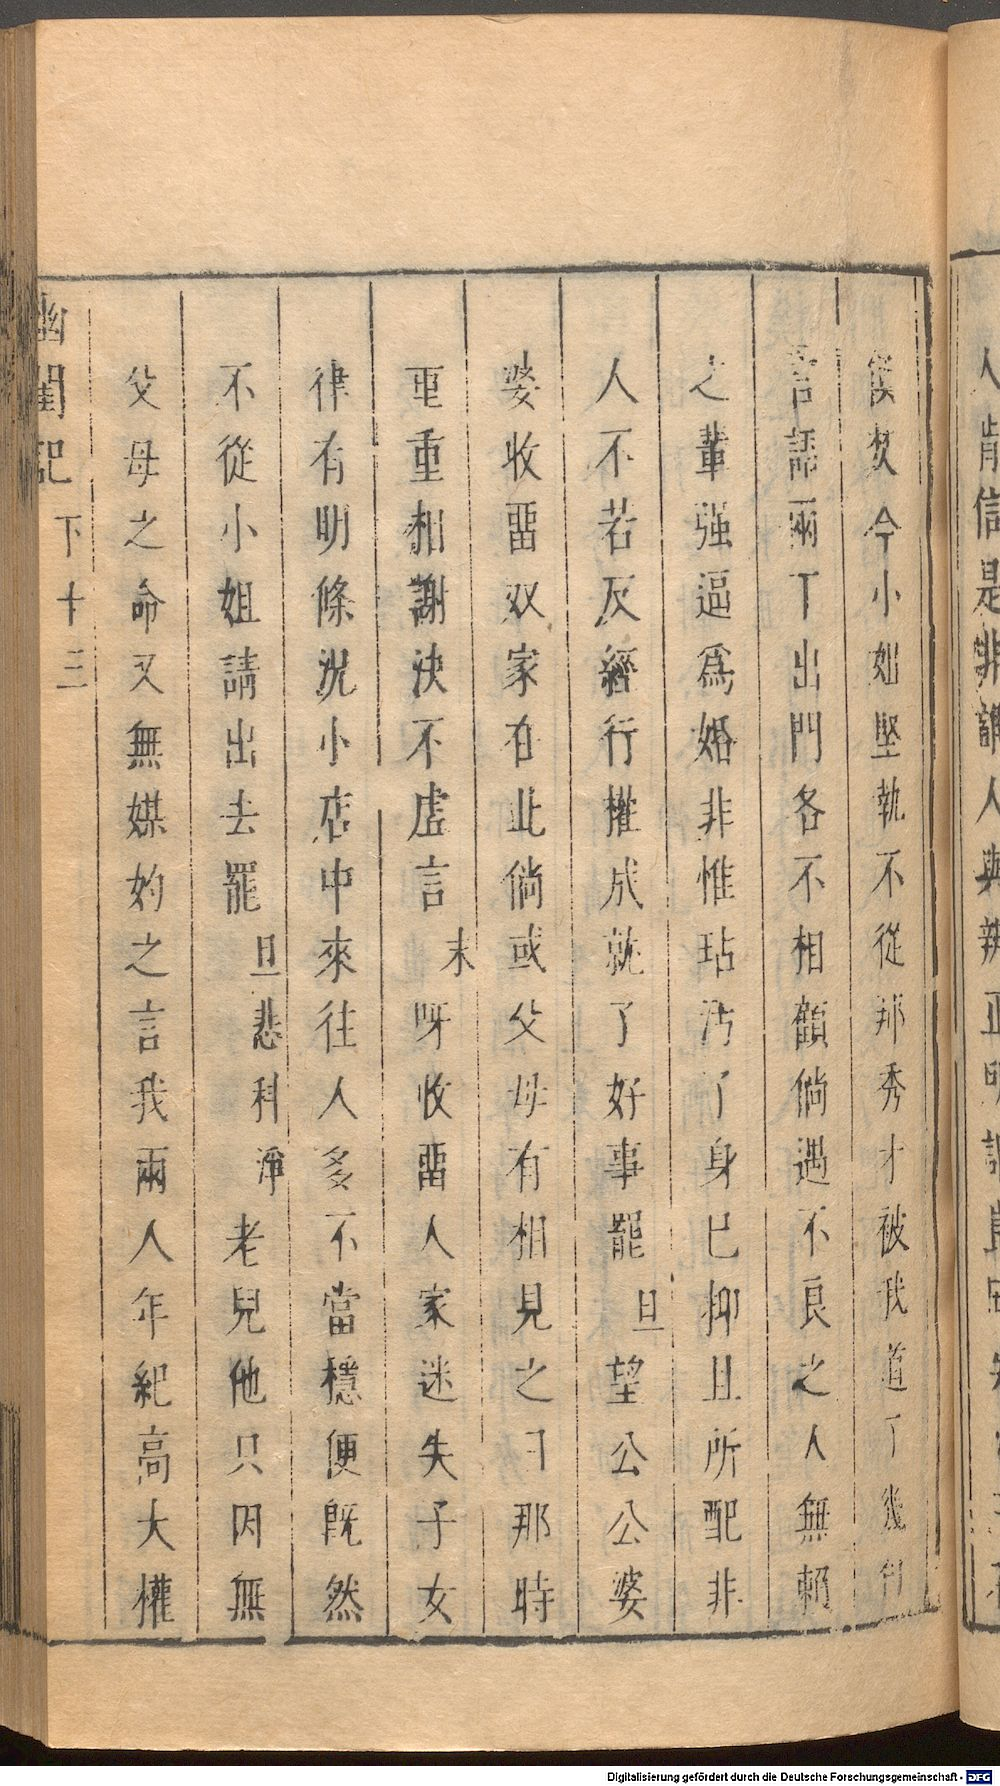 漢如今小姐堅執不從那秀才被我道了幾句
言語兩丁出門各不相顧倘遇不良之人無賴
之輩强逼爲婚非惟玷汚了身巳抑且所配非
人不若反經行權成就了好事罷旦望公公婆
婆收畱双家在此倘或父母有相見之日那時
重重相謝決不虛言末呀收畱人家迷失子女
律有明條况小店中來往人多不當穩便旣然
不從小姐請出去罷旦悲科淨老兒他只因無
父母之命又無媒妁之言我兩人年紀高大權
幽閨記下十三
Digitalisierung gefördert durch die Deutsche Forschungsgemeinschaft - DFG